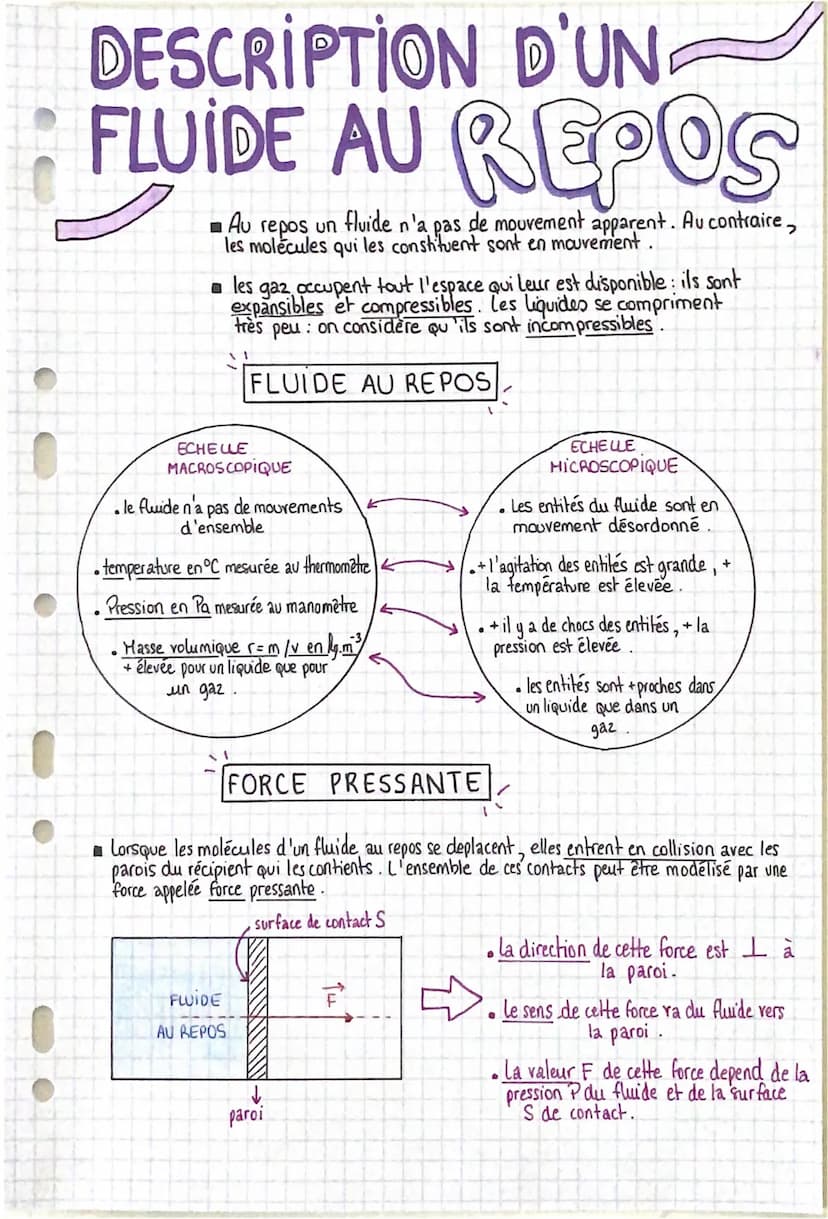 DESCRIPTION D'UN
FLUIDE AU REPOS
▪ Au repos un fluide n'a pas de mouvement apparent. Au contraire,
les molécules qui les constituent sont en mouvement.
▪ les gaz occupent tout l'espace qui leur est disponible : ils sont
expansibles et compressibles. Les liquides se compriment
très peu : on considère qu'ils sont incompressibles.
FLUIDE AU REPOS
ECHELLE
MACROSCOPIQUE
• le fluide n'a pas de mouvements
d'ensemble
• temperature en °C mesurée au thermomètre
• Pression en Pa mesurée au manomètre
• Masse volumique r = m/v en kg.m⁻³
+ élevée pour un liquide que pour
un gaz.
ECHELLE
MICROSCOPIQUE
• Les entités du fluide sont en
mouvement désordonné.
• + l'agitation des entités est grande, +
la température est élevée.
• + il y a de chocs des entités, + la
pression est élevée.
• les entités sont + proches dans
un liquide que dans un
gaz.
FORCE PRESSANTE
▪ Lorsque les molécules d'un fluide au repos se deplacent, elles entrent en collision avec les
parois du récipient qui les contients. L'ensemble de ces contacts peut être modélisé par une
force appelée force pressante.
surface de contact S
FLUIDE
AU REPOS
F
paroi
• la direction de cette force est ⊥ à
la paroi.
• le sens de cette force va du fluide vers
la paroi.
• La valeur F de cette force depend de la
pression P du fluide et de la surface
S de contact.